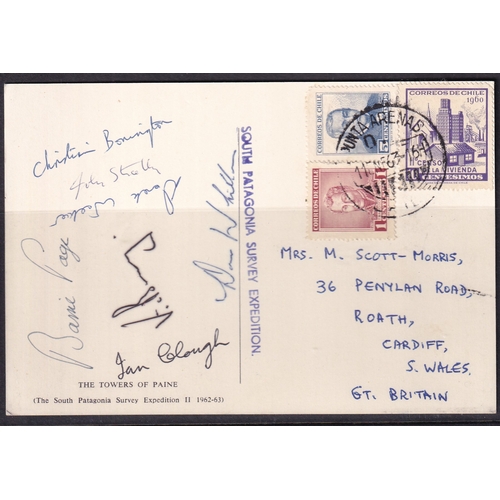 Christian Bonington
John Streetly
Derek Walker
Barrie Page
Don Whillans
Ian Clough
THE TOWERS OF PAINE
(The South Patagonia Survey Expedition II 1962-63)
SOUTH PATAGONIA SURVEY EXPEDITION.
CORREOS DE CHILE
CORREOS DE CHILE
1960
II CENSO
DE LA VIVIENDA
CENTESIMOS
CORREOS DE CHILE
1
PUNTA ARENAS
MRS. M. SCOTT-MORRIS,
36 PENYLAN ROAD,
ROATH,
CARDIFF,
S. WALES.
GT. BRITAIN